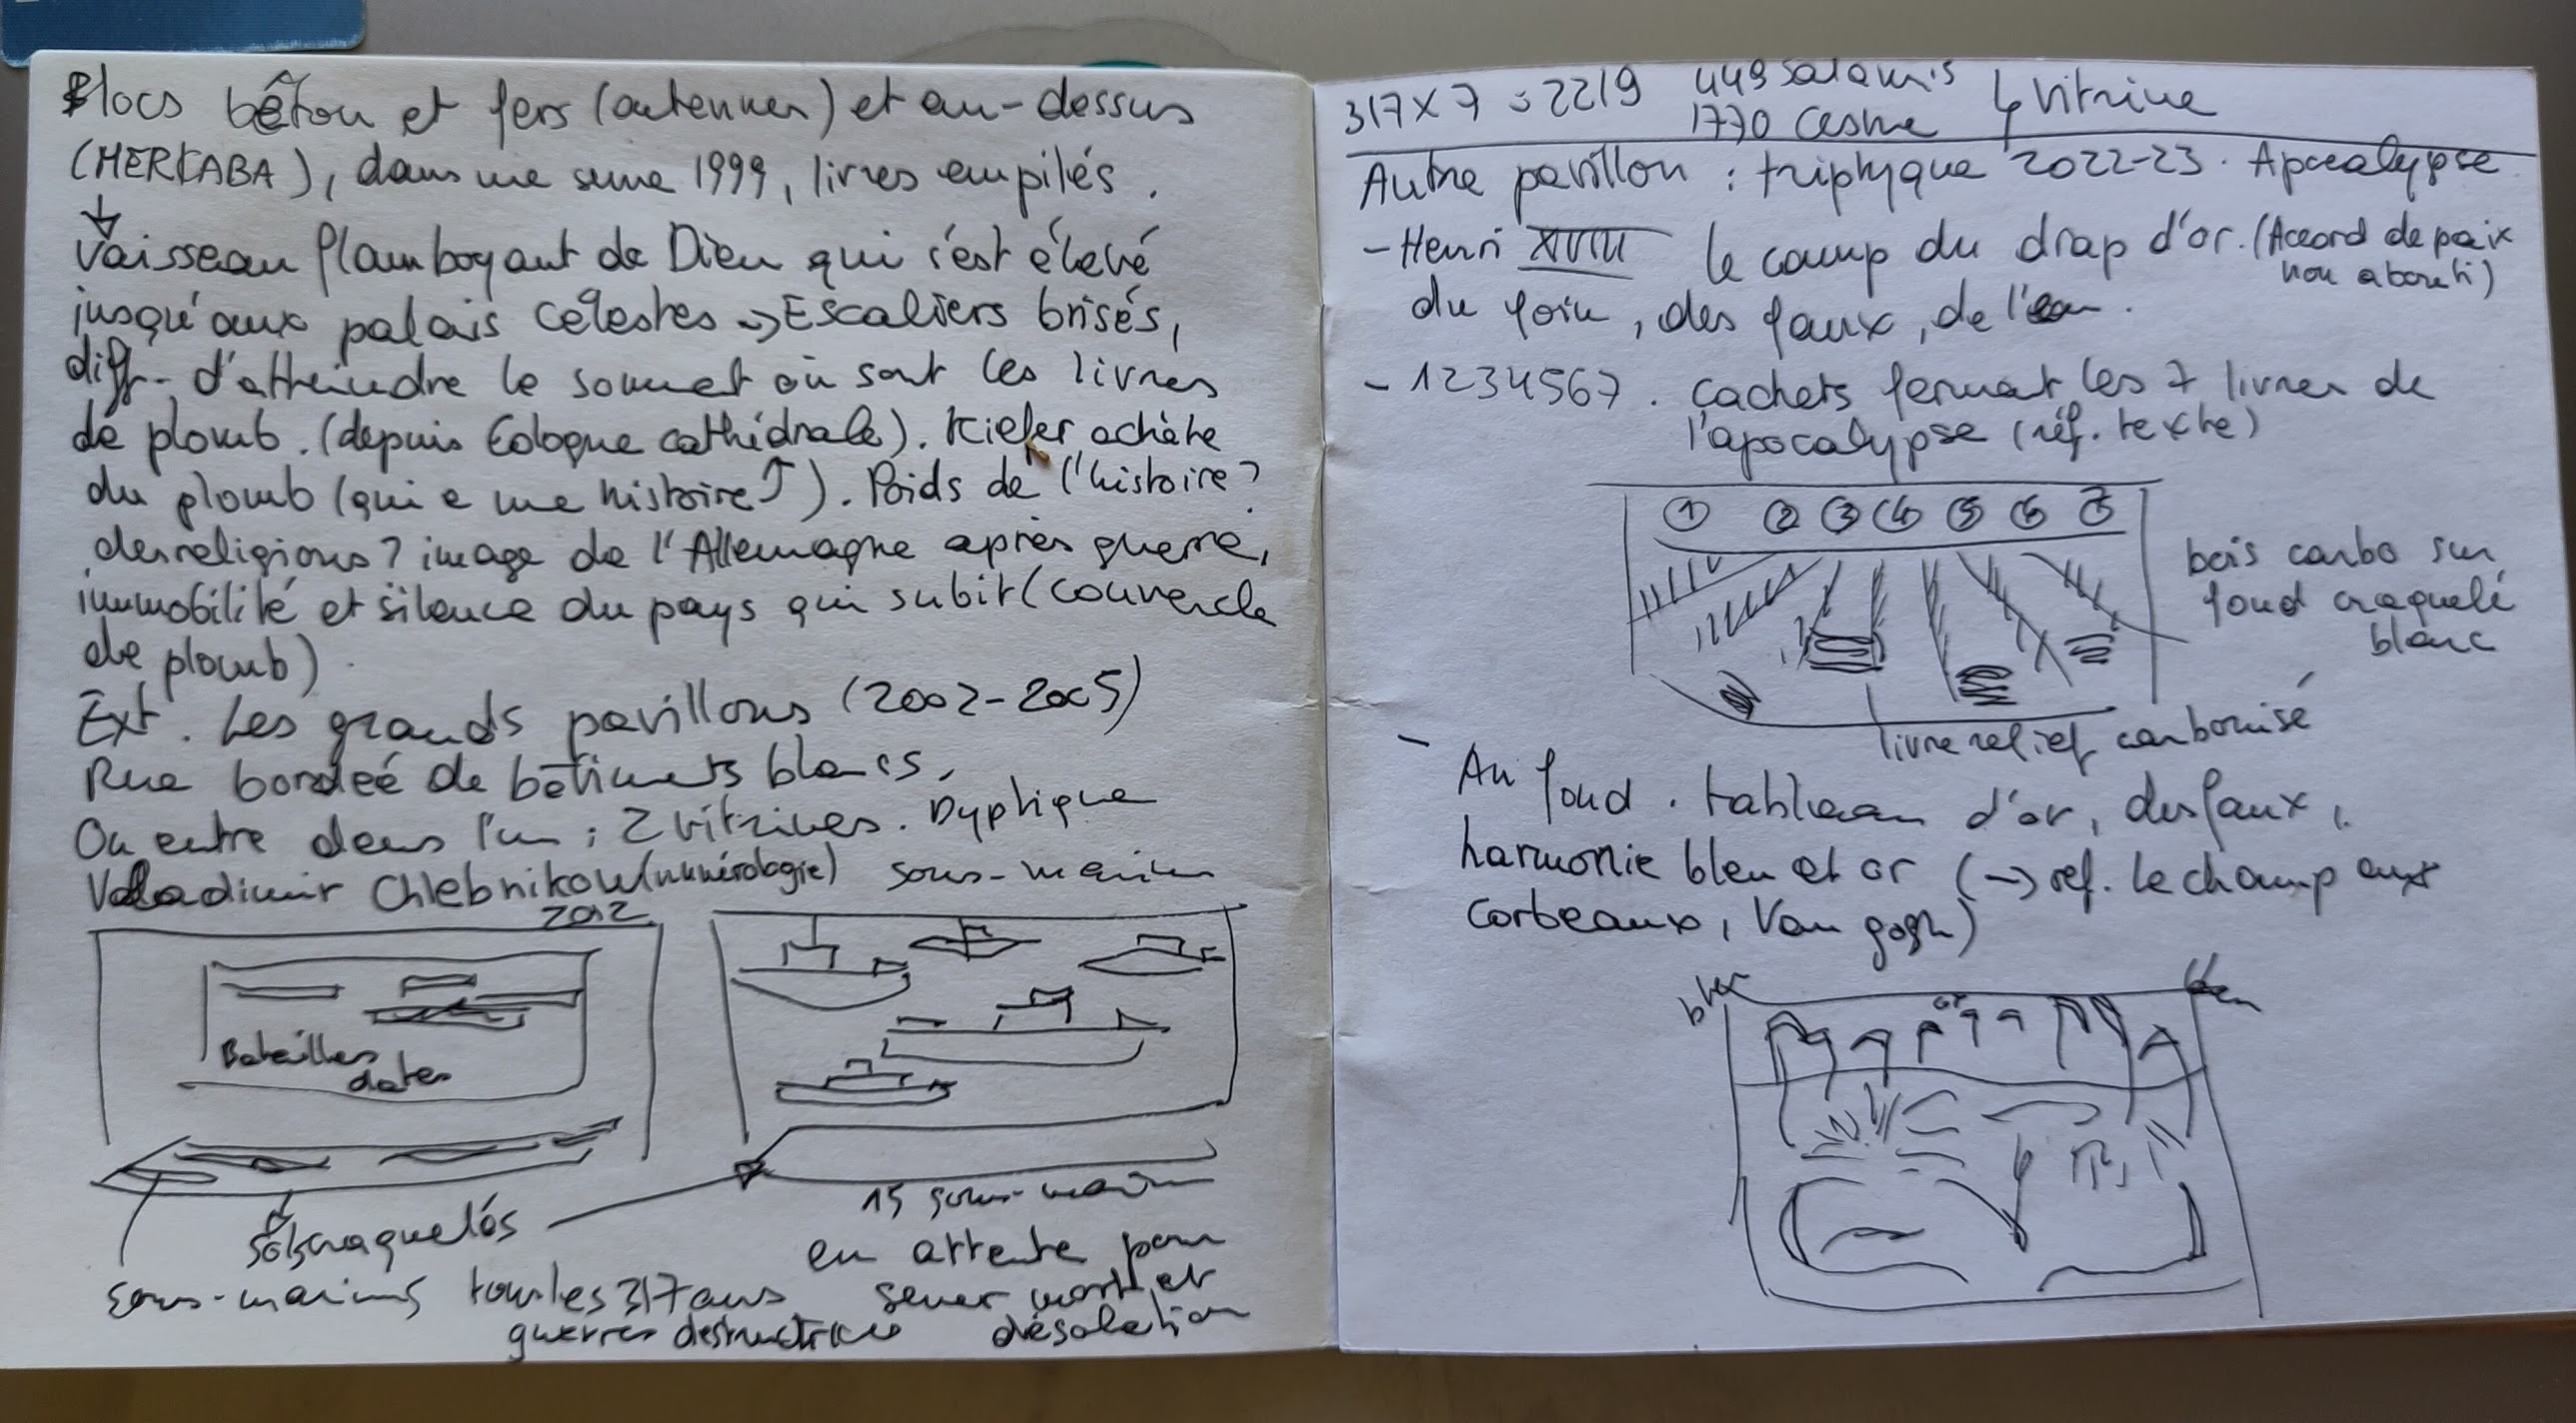 Blocs bêton et fers (antennes) et au-dessus
(MERKABA), dans une serre 1999, livres empilés.
↓
Vaisseau flamboyant de Dieu qui s'est élevé
jusqu'aux palais célestes → Escaliers brisés,
diff. d'atteindre le sommet où sont les livres
de plomb. (depuis Cologne cathédrale). Kiefer achète
du plomb (qui a une histoire ↑). Poids de l'histoire?
des religions? image de l'Allemagne après guerre,
immobilité et silence du pays qui subit (couvercle
de plomb).
Ext. Les grands pavillons (2002-2005)
Rue bordeé de bâtiments blancs.
On entre dans l'un : 2 vitrines. Dyptique
Vladimir Chlebnikow (numérologie) sous-marins
2012
Batailles
dates
sols craquelés
sous-marins
tous les 317 ans
guerres destructrices
15 sous-marins
en attente pour
semer mort et
désolation
317 x 7 = 2219 449 Salamis
1770 Cesme ↳ vitrine
Autre pavillon : triptyque 2022-23. Apocalypse
- Henri XVIII le camp du drap d'or. (Accord de paix
non abouti)
du foin, des faux, de l'eau.
- 1234567. cachets fermant les 7 livres de
l'apocalypse (réf. texte)
1 2 3 4 5 6 7
bois carbo sur
fond craquelé
blanc
livre relief carbonisé
- Au fond. tableau d'or, des faux,
harmonie bleu et or (→ ref. le champ aux
corbeaux, Van gogh)
bleu or bleu